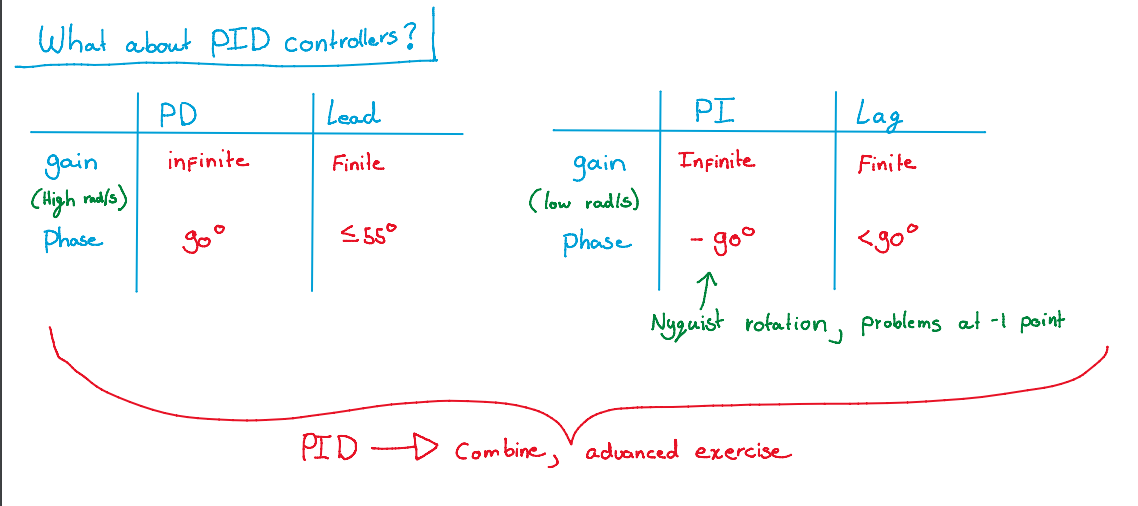 What about PID controllers?
PD Lead
gain infinite Finite
(High rad/s)
Phase 90° ≤55°
PI Lag
gain Infinite Finite
(low rad/s)
Phase - 90° <90°
Nyquist rotation, problems at -1 point
PID → Combine, advanced exercise